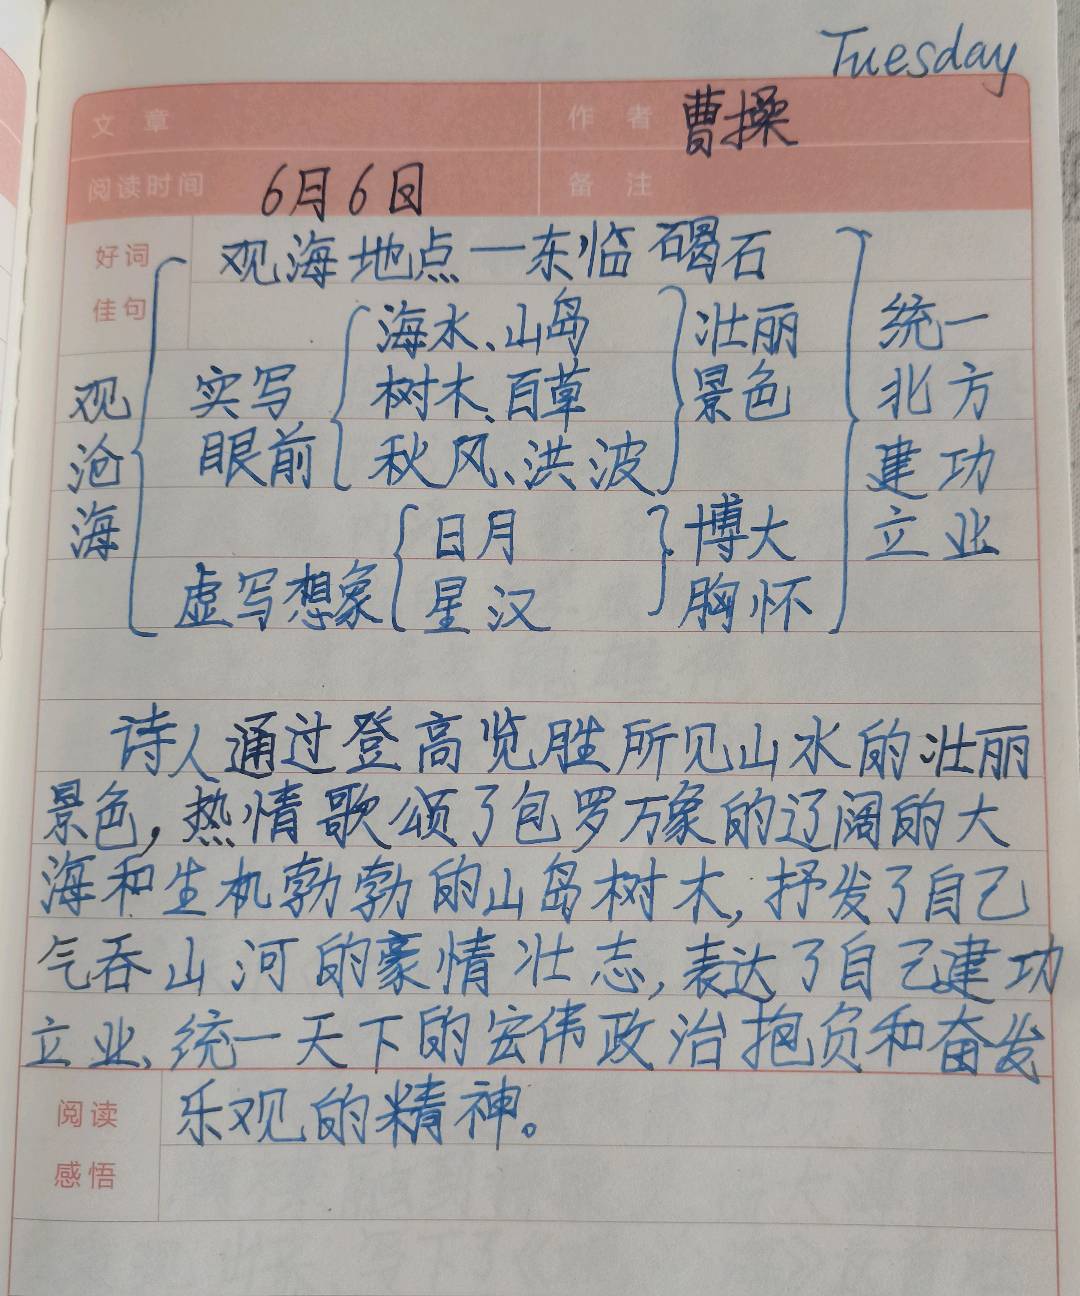 Tuesday
文章 作者 曹操
阅读时间 6月6日 备注
好词 观海地点—东临碣石
佳句 海水、山岛 壮丽 统一
观 实写 树木、百草 景色 北方
沧 眼前 秋风、洪波 建功
海 日月 博大 立业
虚写想象 星汉 胸怀
诗人通过登高览胜所见山水的壮丽
景色,热情歌颂了包罗万象的辽阔的大
海和生机勃勃的山岛树木,抒发了自己
气吞山河的豪情壮志,表达了自己建功
立业、统一天下的宏伟政治抱负和奋发
阅读 乐观的精神。
感悟